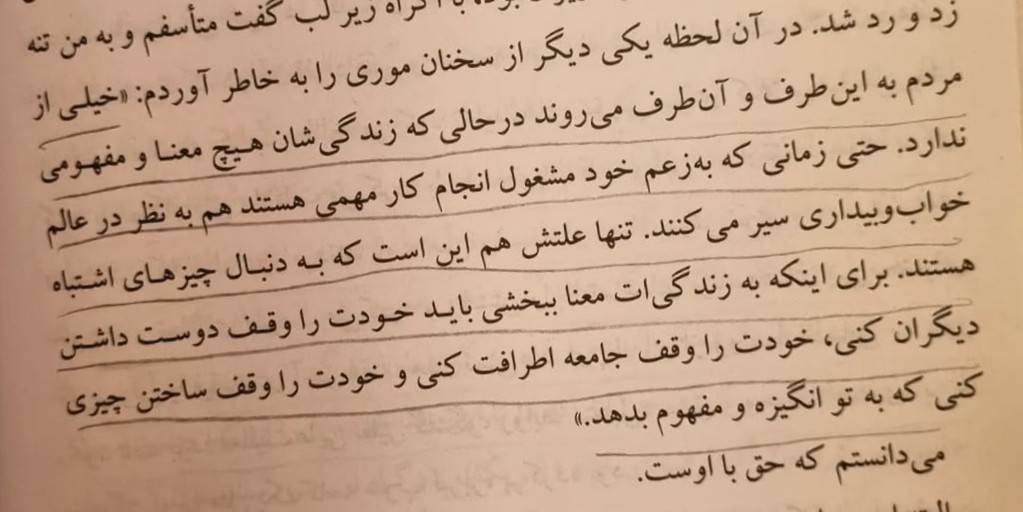 با اکراه زیر لب گفت متأسفم و به من تنه
زد و رد شد. در آن لحظه یکی دیگر از سخنان موری را به خاطر آوردم: «خیلی از
مردم به این‌طرف و آن‌طرف می‌روند درحالی که زندگی‌شان هیچ معنا و مفهومی
ندارد. حتی زمانی که به‌زعم خود مشغول انجام کار مهمی هستند هم به نظر در عالم
خواب‌وبیداری سیر می‌کنند. تنها علتش هم این است که به دنبال چیزهای اشتباه
هستند. برای اینکه به زندگی‌ات معنا ببخشی باید خودت را وقف دوست داشتن
دیگران کنی، خودت را وقف جامعه اطرافت کنی و خودت را وقف ساختن چیزی
کنی که به تو انگیزه و مفهوم بدهد.»
می‌دانستم که حق با اوست.